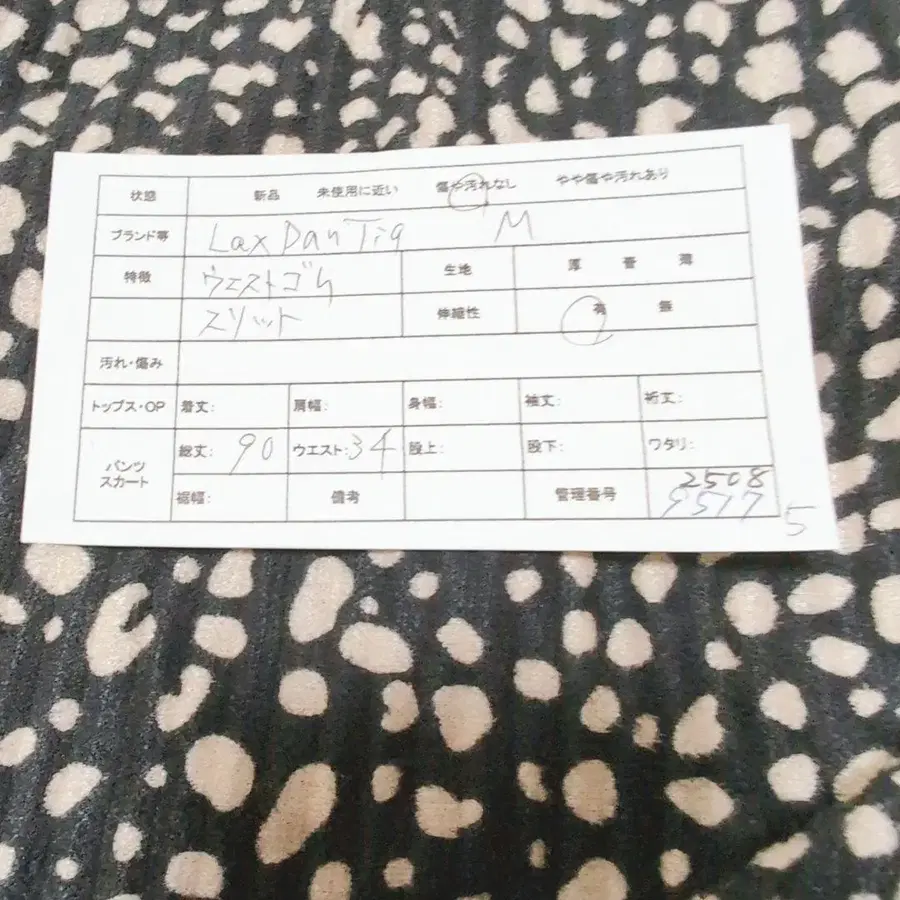 状態 新品 未使用に近い 傷や汚れなし やや傷や汚れあり
ブランド等 Lax Dan Tiq M
特徴 ウエストゴム 生地 厚 普 薄
スリット 伸縮性 有 無
汚れ・傷み
トップス・OP 着丈: 肩幅: 身幅: 袖丈: 裄丈:
パンツ スカート 総丈: 90 ウエスト: 34 股上: 股下: ワタリ:
裾幅: 備考 管理番号 2508
9577 5